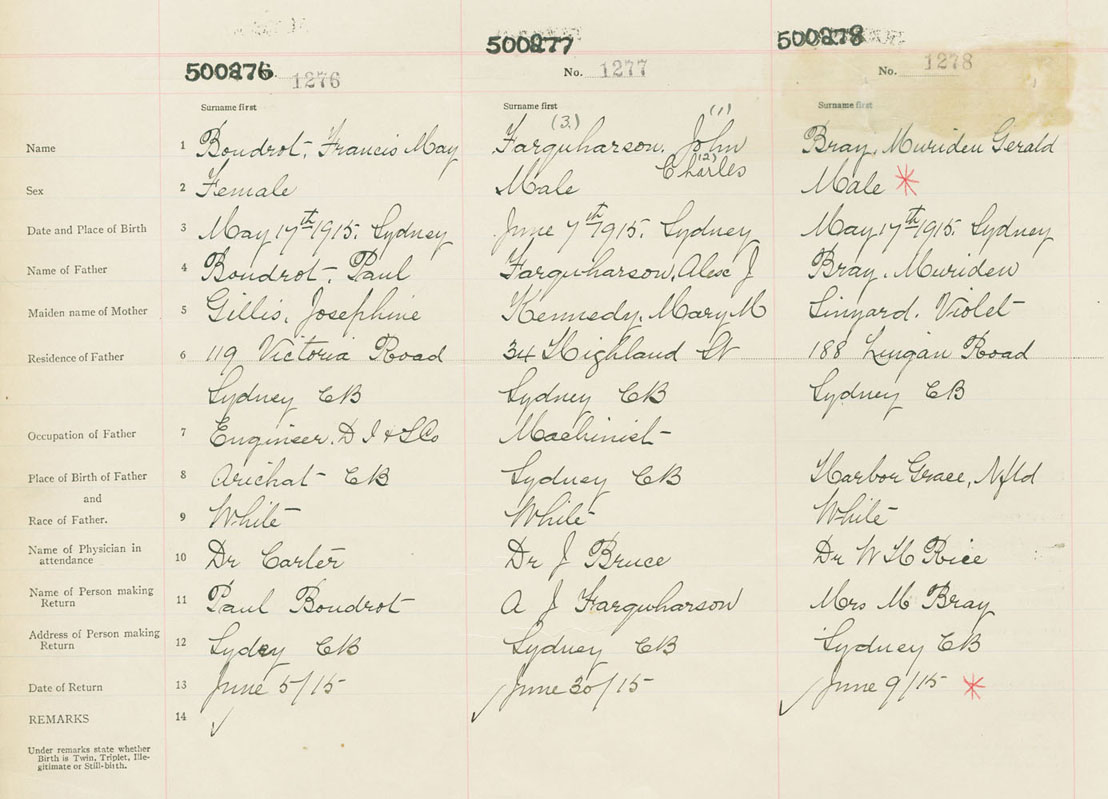 500276 1276
500277
No. 1277
500278
No. 1278
Surname first Surname first Surname first
Name 1 Boudrot, Francis May Farquharson, John (1) Bray, Muriden Gerald
(3.) Charles (2)
Sex 2 Female Male Male *
Date and Place of Birth 3 May 17th 1915. Sydney June 7th 1915. Sydney May 17th 1915. Sydney
Name of Father 4 Boudrot, Paul Farquharson, Alex J Bray, Muriden
Maiden name of Mother 5 Gillis, Josephine Kennedy, Mary M Linyard, Violet
Residence of Father 6 119 Victoria Road 34 Highland St 188 Lingan Road
Sydney CB Sydney CB Sydney CB
Occupation of Father 7 Engineer, D I & S Co Machinist
Place of Birth of Father 8 Arichat CB Sydney CB Harbor Grace, Nfld
and
Race of Father. 9 White White White
Name of Physician in
attendance 10 Dr Carter Dr J Bruce Dr W H Rice
Name of Person making
Return 11 Paul Boudrot A J Farquharson Mrs M Bray
Address of Person making
Return 12 Sydey CB Sydney CB Sydney CB
Date of Return 13 June 5/15 June 30/15 June 9/15 *
REMARKS 14 ✓ ✓ ✓
Under remarks state whether
Birth is Twin, Triplet, Ille-
gitimate or Still-birth.